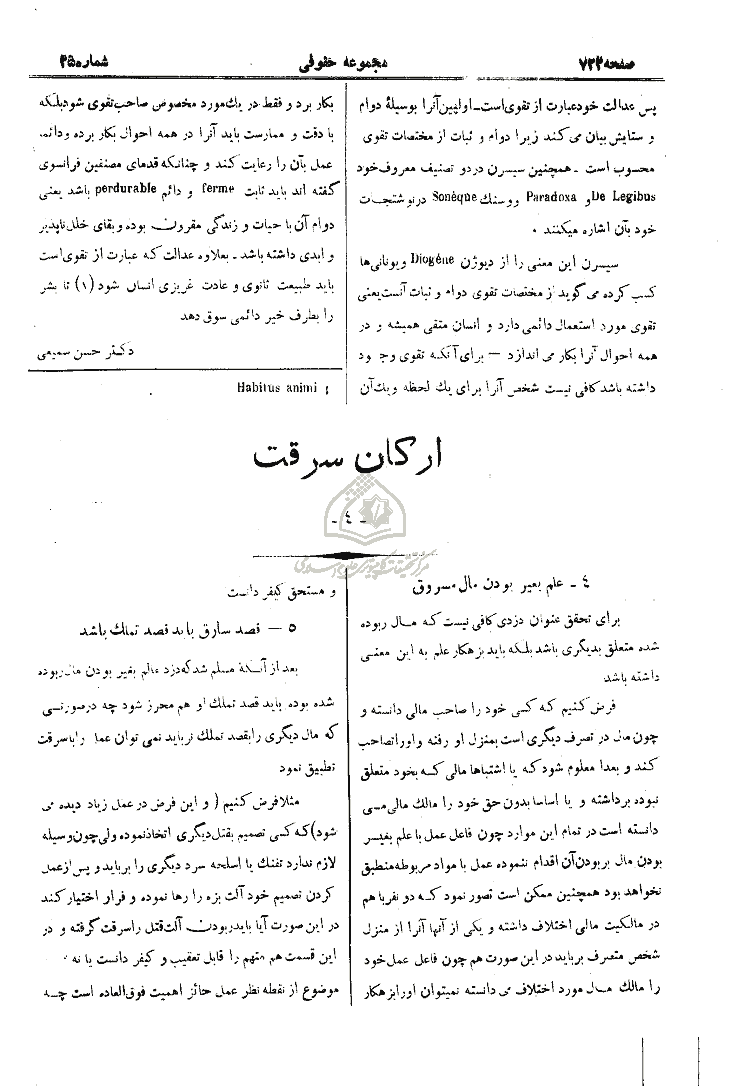 صفحه ۷۲۲
مجموعه حقوقی
شماره ۲۵
پس عدالت خود عبارت از تقوی است ـ اولپین آنرا بوسیلهٔ دوام
و ستایش بیان می کند زیرا دوام و ثبات از مختصات تقوی
محسوب است ـ همچنین سیسرن در دو تصنیف معروف خود
De Legibus و Paradoxa و سنك Sonèque در نوشتجات
خود بآن اشاره میکنند ۰
سیسرن این معنی را از دیوژن Diogène و یونانی‌ها
کسب کرده می گوید از مختصات تقوی دوام و ثبات آنست یعنی
تقوی مورد استعمال دائمی دارد و انسان متقی همیشه و در
همه احوال آنرا بکار می اندازد — برای آنکه تقوی وجود
داشته باشد کافی نیست شخص آنرا برای یك لحظه و یك آن
بکار برد و فقط در یك مورد مخصوص صاحب تقوی شود بلکه
با دقت و ممارست باید آنرا در همه احوال بکار برده و دائم
عمل بآن را رعایت کند و چنانکه قدمای مصنفین فرانسوی
گفته اند باید ثابت ferme و دائم perdurable باشد یعنی
دوام آن با حیات و زندگی مقرون بوده و بقای خلل ناپذیر
و ابدی داشته باشد ـ بعلاوه عدالت که عبارت از تقوی است
باید طبیعت ثانوی و عادت غریزی انسان شود (۱) تا بشر
را بطرف خیر دائمی سوق دهد
دکتر حسن سمیعی
۱ Habitus animi
ارکان سرقت
- ٤ -
مرکز تحقیقات کامپیوتری علوم اسلامی
٤ ـ علم بغیر بودن مال مسروق
برای تحقق عنوان دزدی کافی نیست که مال ربوده
شده متعلق بدیگری باشد بلکه باید بزهکار علم به این معنی
داشته باشد
فرض کنیم که کسی خود را صاحب مالی دانسته و
چون مال در تصرف دیگری است بمنزل او رفته و اورا تصاحب
کند و بعدا معلوم شود که یا اشتباها مالی که بخود متعلق
نبوده برداشته و یا اساسا بدون حق خود را مالك مالی می
دانسته است در تمام این موارد چون فاعل عمل با علم بغیر
بودن مال بربودن آن اقدام ننموده عمل با مواد مربوطه منطبق
نخواهد بود همچنین ممکن است تصور نمود که دو نفر باهم
در مالکیت مالی اختلاف داشته و یکی از آنها آنرا از منزل
شخص متصرف برباید در این صورت هم چون فاعل عمل خود
را مالك مال مورد اختلاف می دانسته نمیتوان اورا بزهکار
و مستحق کیفر دانست
٥ — قصد سارق باید قصد تملك باشد
بعد از آنکه مسلم شد که دزد عالم بغیر بودن مال ربوده
شده بوده باید قصد تملك او هم محرز شود چه در صورتی
که مال دیگری را بقصد تملك نرباید نمی توان عمل را با سرقت
تطبیق نمود
مثلا فرض کنیم ( و این فرض در عمل زیاد دیده می
شود) که کسی تصمیم بقتل دیگری اتخاذ نموده ولی چون وسیله
لازم ندارد تفنك یا اسلحه سرد دیگری را برباید و پس از عمل
کردن تصمیم خود آلت بزه را رها نموده و فرار اختیار کند
در این صورت آیا باید ربودن آلت قتل را سرقت گرفته و در
این قسمت هم متهم را قابل تعقیب و کیفر دانست یا نه ۰
موضوع از نقطه نظر عمل حائز اهمیت فوق العاده است چه